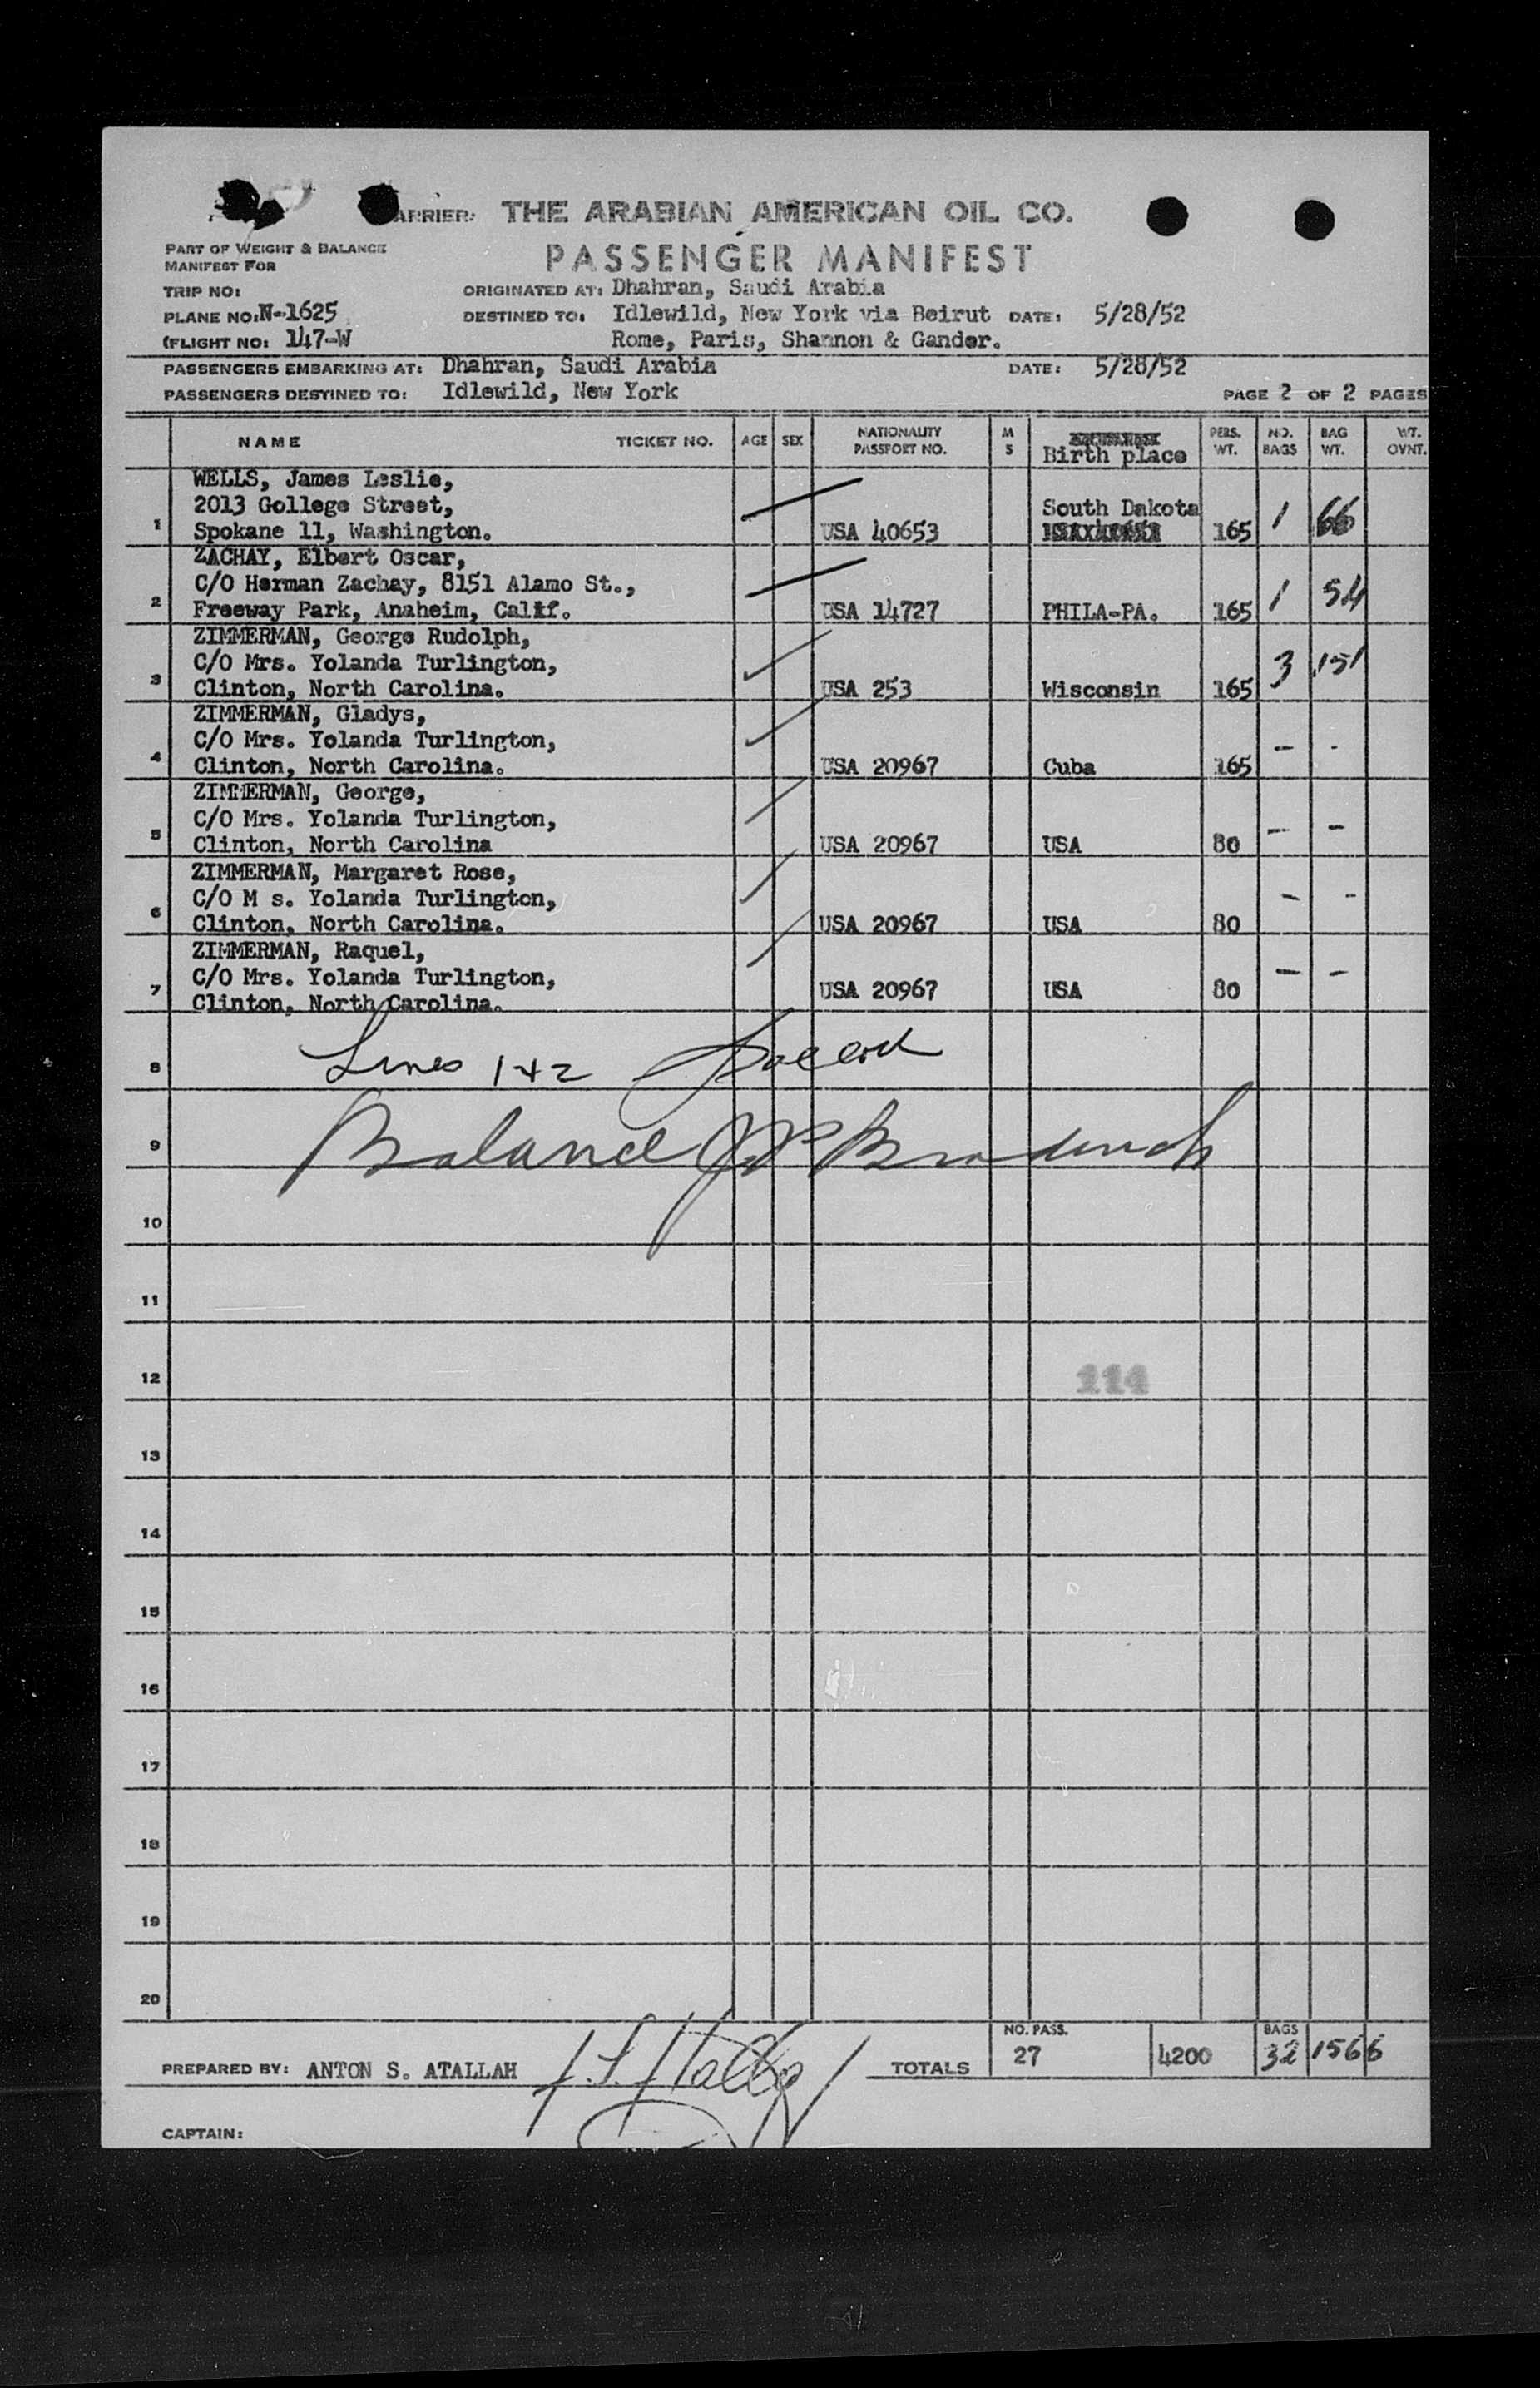 ARRIER: THE ARABIAN AMERICAN OIL CO.
PART OF WEIGHT & BALANCE
MANIFEST FOR
PASSENGER MANIFEST
TRIP NO:
ORIGINATED AT: Dhahran, Saudi Arabia
PLANE NO: N-1625
DESTINED TO: Idlewild, New York via Beirut DATE: 5/28/52
(FLIGHT NO: 147-W
Rome, Paris, Shannon & Gander.
PASSENGERS EMBARKING AT: Dhahran, Saudi Arabia DATE: 5/28/52
PASSENGERS DESTINED TO: Idlewild, New York PAGE 2 OF 2 PAGES
NAME TICKET NO. AGE SEX NATIONALITY PASSPORT NO. M S Birth place PERS. WT. NO. BAGS BAG WT. WT. OVNT.
WELLS, James Leslie,
2013 Gollege Street, South Dakota
1 Spokane 11, Washington. USA 40653 165 1 66
ZACHAY, Elbert Oscar,
C/O Herman Zachay, 8151 Alamo St.,
2 Freeway Park, Anaheim, Calif. USA 14727 PHILA-PA. 165 1 54
ZIMMERMAN, George Rudolph,
C/O Mrs. Yolanda Turlington,
3 Clinton, North Carolina. USA 253 Wisconsin 165 3 151
ZIMMERMAN, Gladys,
C/O Mrs. Yolanda Turlington,
4 Clinton, North Carolina. USA 20967 Cuba 165 - -
ZIMMERMAN, George,
C/O Mrs. Yolanda Turlington,
5 Clinton, North Carolina USA 20967 USA 80 - -
ZIMMERMAN, Margaret Rose,
C/O M s. Yolanda Turlington,
6 Clinton, North Carolina. USA 20967 USA 80 - -
ZIMMERMAN, Raquel,
C/O Mrs. Yolanda Turlington,
7 Clinton, North Carolina. USA 20967 USA 80 - -
8 Lines 1+2
9 Balance
10
11
12 114
13
14
15
16
17
18
19
20
PREPARED BY: ANTON S. ATALLAH TOTALS NO. PASS. 27 4200 BAGS 32 1566
CAPTAIN: